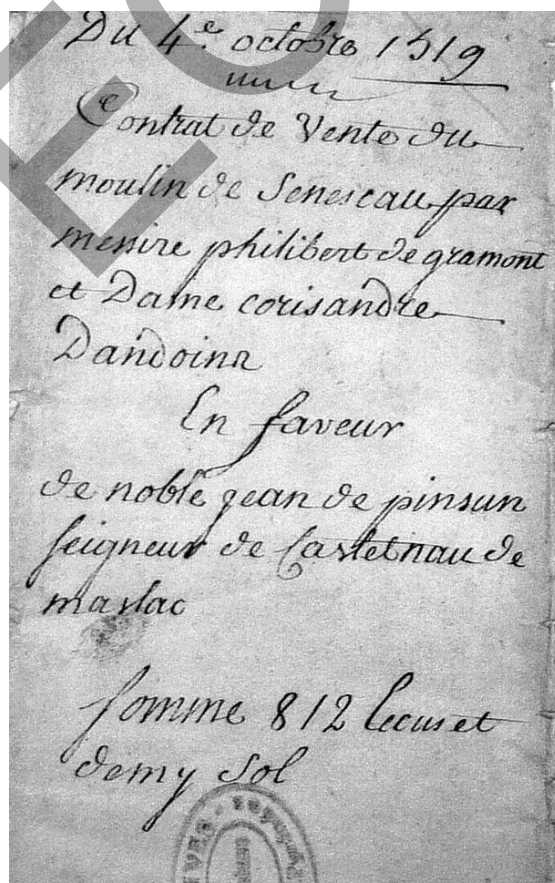 Du 4.e octobre 1519
Contrat de Vente du
moulin de Senescau par
messire philibert de gramont
et Dame corisandre
Dandoins
En faveur
de noble jean de pinsun
seigneur de Castetnau de
maslac
somme 812 Ecus et
demy sol